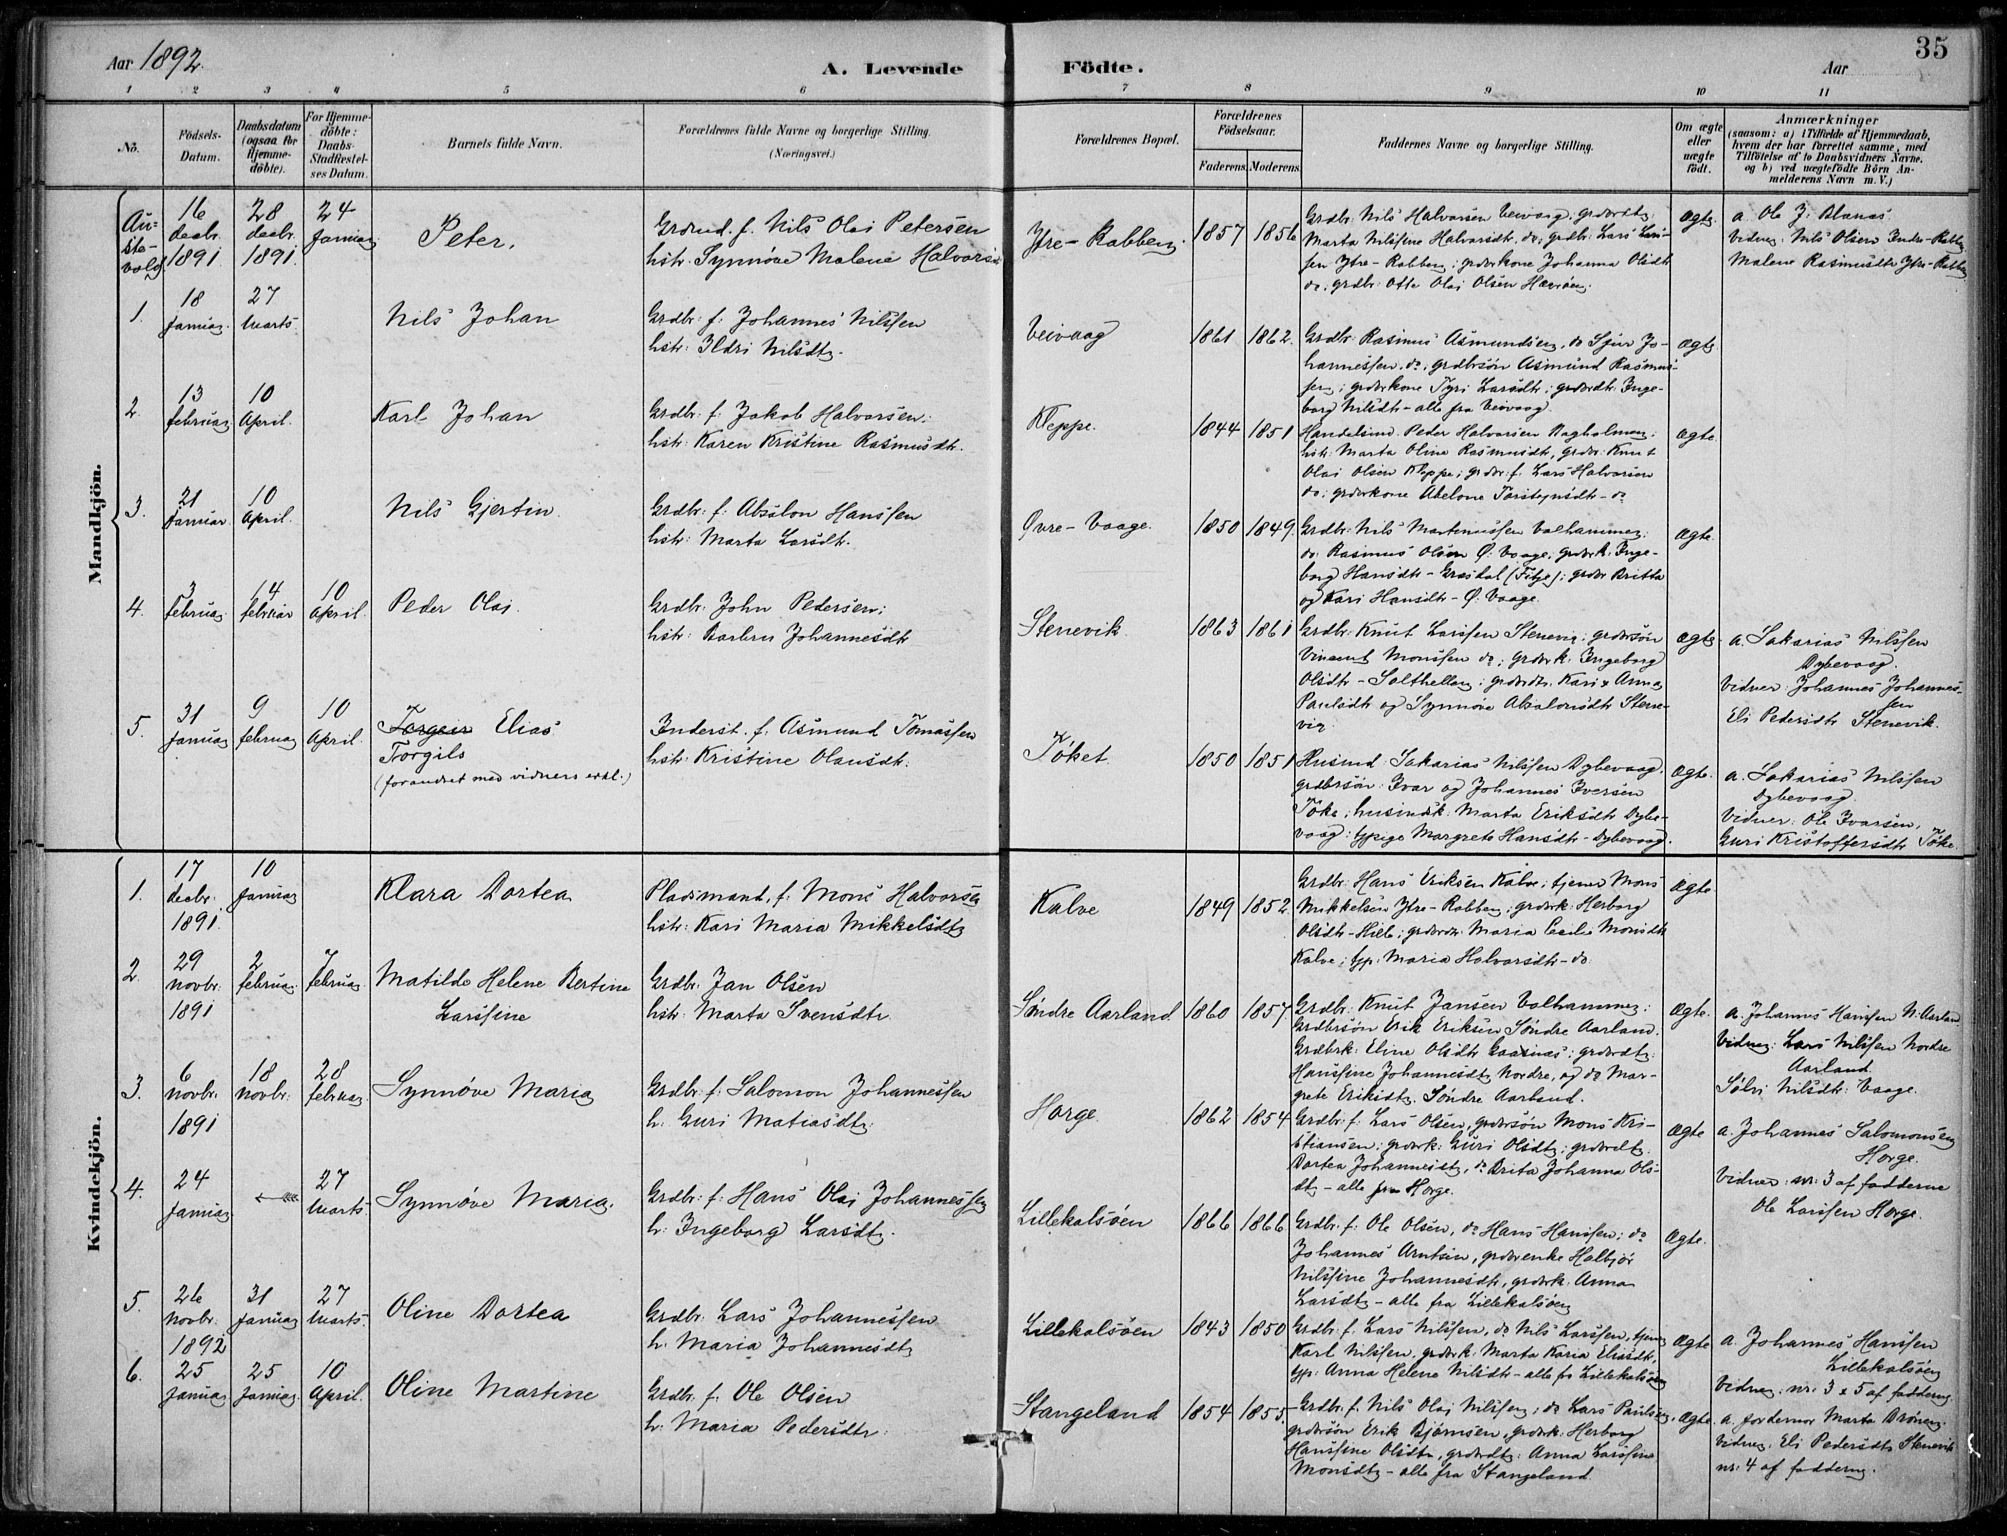 Aar 1892.
A. Levende Födte.
Aar
35
1 2 3 4 5 6 7 8 9 10 11
No.
Födsels-
Datum.
Daabsdatum
(ogsaa for
Hjemme-
döbte).
For Hjemme-
döbte:
Daabs-
Stadfæstel-
ses Datum.
Barnets fulde Navn.
Forældrenes fulde Navne og borgerlige Stilling.
(Næringsvei.)
Forældrenes Bopæl.
Forældrenes
Födselsaar.
Faderens.
Moderens.
Faddernes Navne og borgerlige Stilling.
Om ægte
eller
uægte
födt.
Anmærkninger
(saasom: a) i Tilfælde af Hjemmedaab,
hvem der har forrettet samme, med
Tilföielse af to Daabsvidners Navne,
og b) ved uægtefödte Börn An-
melderens Navn m. V.)
Mandkjön.
Au-
ste-
vold
16
decbr.
1891
28
decbr.
1891
24
Januar
Peter.
Grdmd. f. Nils Olai Petersen
hstr. Synnøve Malene Halvorsd
Ytre-Rabben.
1857
1856
Grdbr. Nils Halvorsen Veivaag, grdbrdtr.
Marta Nilsine Halvorsdtr, do; grdbr. Lars Lars-
sen Ytre-Rabben; grdbrkone Johanna Olsdtr
do. grdbr. Otte Olai Olsen
Ægte.
a. Ole J. Blanas.
Vidner: Nils Olsen Indre-Rabben
Malene Rasmusdtr Ytre-Rabben
1.
18
Januar.
27
Marts
Nils Johan
Grdbr. f. Johannes Nilssen
hstr. Ildri Nilsdtr.
Veivaag
1861
1862.
Grdbr. Rasmus Asmundsen, do Sjur Jo-
hannessen, do, grdbrsön Asmund Rasmus-
sen; grdbrkone Tyri Larsdtr; grdbrdtr. Inge-
borg Nilsdtr - alle fra Veivaag.
Ægte
2.
13
Februar
10
April.
Karl Johan
Grdbr. f. Jakob Halvorsen.
hstr. Karen Kristine Rasmusdtr.
Kleppe.
1844
1851
Handelsmd. Peder Halvorsen Bagholmen;
hstr. Marta Oline Rasmusdtr, grdbr. Knut
Olai Olsen Kleppe; grdbr. f. Lars Halvorsen
do; grdbrkone Abelone Torsteinsdtr - do
Ægte
3.
21
Januar
10
April.
Nils Gjertin
Grdbr. f. Absalon Hanssen
hstr. Marta Larsdtr.
Øvre-Vaage.
1850
1849.
Grdbr. Nils Martinussen Valhammer;
do. Rasmus Olsen Ø. Vaage, grdbrk. Inge-
borg Hansdtr - Grasdal (Fitje); grdbr Britta
og Kari Hansdtr - Ø. Vaage.
Ægte.
4.
3
Februar
14
februar
10
April.
Peder Olai
Grdbr. John Pedersen;
hstr. Barbru Johannesdtr
Stenevik.
1863
1861
Grdbr. Knut Larssen Stenevig; grdbrsön
Vincent Monssen do; grdbrk. Ingeborg
Olsdtr - Salthellen; grdbrdtr. Kari & Anna
Paulsdtr og Synnøve Absalonsdtr Stene-
vig
Ægte.
a. Sakarias Nilssen
Dybevaag.
Vidner: Johannes Johannes-
sen
Eli Pedersdtr Stenevik.
5.
31
Januar
9
februar
10
April.
Torgeir Elias
Torgils
(forandret med vidners erkl.)
Inderst. f. Asmund Tomassen
hstr. Kristine Olausdtr.
Töket.
1850
1851
Husmd Sakarias Nilssen Dybevaag.
grdbrsön Ivar og Johannes Iversen
Töke; husmdk. Marta Eriksdtr Dybe-
vaag; ppige Margrete Hansdtr - Dybevaag.
Ægte.
a. Sakarias Nilssen
Dybevaag
Vidner: Ole Ivarsen,
Guri Kristoffersdtr Töke.
Kvindekjön.
1.
17
decbr.
1891.
10
Januar
Klara Dortea
Pladsmand, f. Mons Halvorsen
hstr. Kari Maria Mikkelsdtr
Kalve
1849
1852.
Grdbr. Hans Eriksen Kalve; tjener Mons
Mikkelsen Ytre-Rabben; grdbrk. Herborg
Olsdtr - Hille; grdbrdtr. Maria Cecilie Monsdtr
Kalve; pp. Maria Halvorsdtr - do.
Ægte
2.
29
Novbr.
1891
2
februar
7
februar
Matilde Helene Bertine
Larssine
Grdbr. Jan Olsen
hstr. Marta Svensdtr.
Søndre Aarland
1860
1857.
Grdbr. Knut Jansen Valhammer;
Grdbrsön Erik Eriksen Søndre Aarland.
Grdbrk: Eline Olsdtr Gaasnes; grdbrdtr.
Hanssine Johannesdtr Nordre, og do Mar-
grete Eriksdtr Søndre Aarland.
Ægte.
a. Johannes Hanssen N. Aarland
Vidner: Lars Nilssen Nordre
Aarland
Sølvi Nilsdtr: Vaage.
3.
6
Novbr.
1891
18
Novbr.
28
februar
Synnøve Maria
Grdbr. f. Salomon Johannessen
h. Guri Matiasdtr.
Horge.
1862
1854
Grdbr. f. Lars Olsen, grdbrsön Mons Kri-
stiansen; grdbrk. Guri Olsdtr; grdbrdtr.
Dortea Johannesdtr, do Brita Johanna Ols-
dtr - alle fra Horge.
Ægte
a. Johannes Salomonsen
Horge.
Vidner: nr: 3 af fadderne
Ole Larssen Horge.
4.
24
Januar
27
Marts
Synnøve Maria.
Grdbr. f. Hans Olai Johannessen
h. Ingeborg Larsdtr.
Lillekalsøen
1866
1866.
Grdbr. f. Ole Olsen, do Hans Hanssen; do
Johannes Arntsen, grdbrenke Halbjör
Nilssine Johannesdtr, grdbrk. Anna
Larsdtr - alle fra Lillekalsøen
Ægte.
5.
26
Novbr.
1892
31
Januar
27
Marts
Oline Dortea
Grdbr. Lars Johannessen
h. Maria Johannesdtr
Lillekalsøen
1843
1850
Grdbr. f. Lars Nilssen, do Nils Larssen, tjener
Karl Nilssen, grdbrk. Marta Karia Eliasdtr,
pp. Anna Helene Nilsdtr - alle fra Lillekalsøen
Ægte
a. Johannes Hanssen
Lillekalsøen
Vidner: nr: 3 & 5 af fadderne
6.
25
Januar
25
Januar
10
April.
Oline Martine
Grdbr. f. Ole Olsen
h. Maria Pedersdtr.
Stangeland
1854
1855.
Grdbr. f. Nils Olai Nilssen; do Lars Paulsen,
grdbrsön Erik Bjørnsen, grdbrk. Herborg
Hanssine Olsdtr, grdbrdtr. Anna Larssine
Monsdtr - alle fra Stangeland
Ægte
a. Jordemor Marta Drönen.
Vidner: Eli Pedersdtr Stenevik
nr: 4 af fadderne.